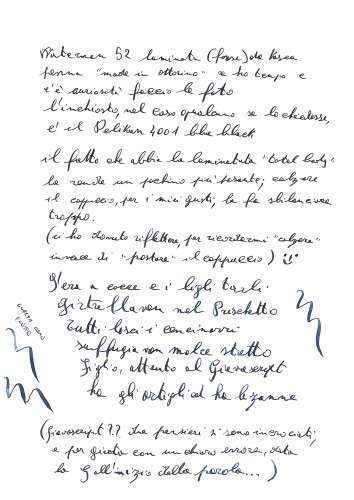 Waterman 52 laminata (forse) da Vasea
penna "made in ottorino" se ho tempo e
c'è curiosità faccio le foto
l'inchiostro, nel caso qualcuno se lo chiedesse,
è il Pelikan 4001 blue black
il fatto che abbia la laminatura "total body"
la rende un pochino più pesante; calzare
il cappuccio, per i miei gusti, la fa sbilanciare
troppo.
(ci ho dovuto riflettere, per ricordarmi "calzare"
invece di "postare" il cappuccio)
S'era a cocce e i ligli tarli
girtrellavan nel Pruschetto
tutti losci i cencinarri
suffuggian non molce stretto
Figlio, attento al Giavascript
ha gli artigli ed ha le zanne
(Giavascript?? due pensieri si sono incrociati,
e per giunta con un chiaro errore, data
la G all'inizio della parola...)